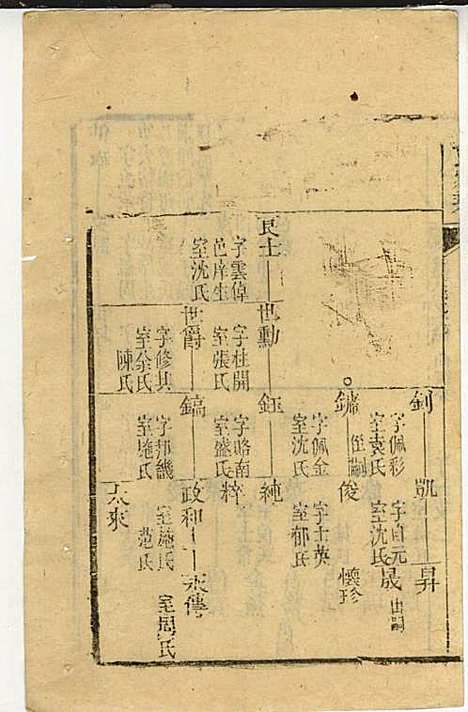 釗
字佩彩
室袁氏
凱
字自元
室沈氏
昇
晟
出嗣
鏞
伍嗣
字佩金
室沈氏
俊
字士英
室郁氏
懷珍
良士
字雲倬
邑庠生
室沈氏
世勳
字柱開
室張氏
鈺
字略南
室盛氏
純
粹
世爵
字修其
室余氏
陳氏
鎬
字邦畿
室施氏
政和
室施氏
范氏
天傳
室周氏
天來